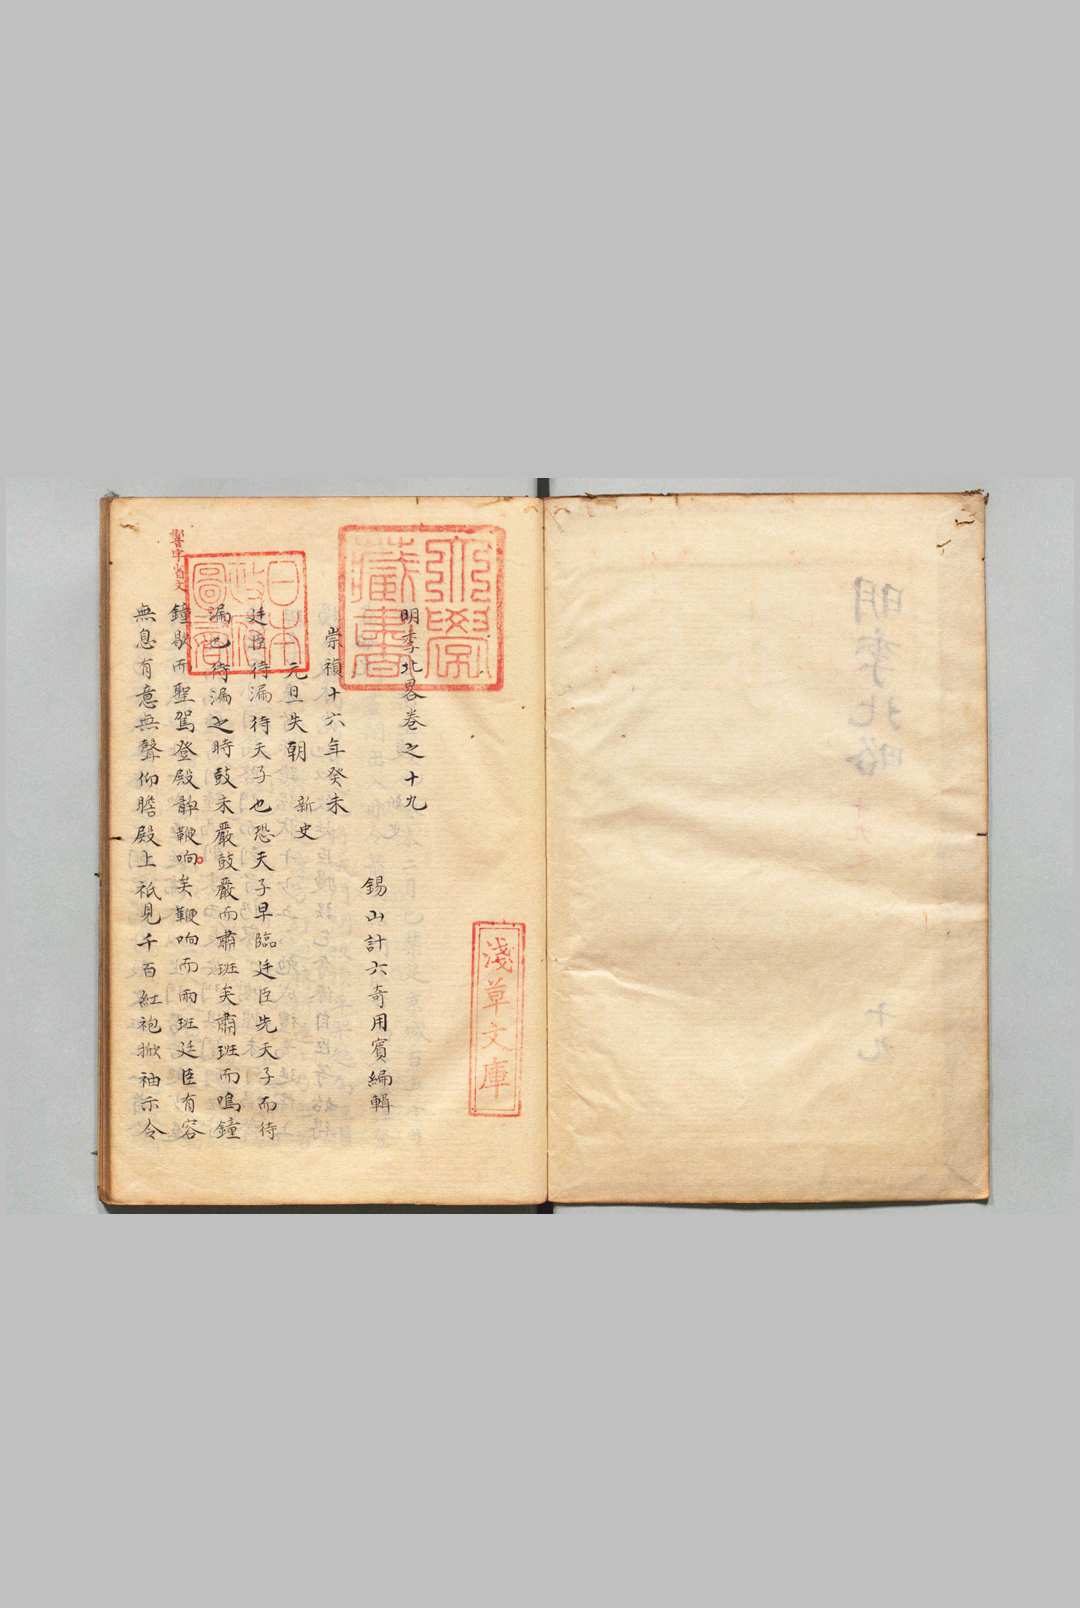 明季北略
十九
明季北畧卷之十九
錫山計六奇用賓編輯
崇禎十六年癸未
元旦失朝 新史
廷臣待漏待天子也恐天子早臨廷臣先天子而待
漏也待漏之時鼓未嚴鼓嚴而肅班矣肅班而鳴鐘
鐘歇而聖駕登殿靜鞭响矣鞭响而兩班廷臣有容
無息有意無聲仰瞻殿上祇見千百紅袍掀袖示令
淺草文庫
日本
政府
圖書